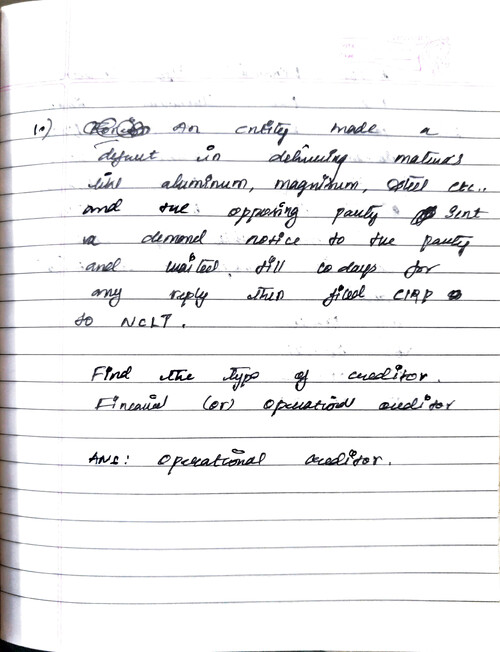 10) An entity made a
defaut in delivering materials
like aluminum, magnisum, steel etc..
and the opposing party sent
a demand notice to the party
and waited till 10 days for
any reply then filed CIRP
to NCLT.
Find the type of creditor.
Financial (or) operational creditor
Ans: operational creditor.